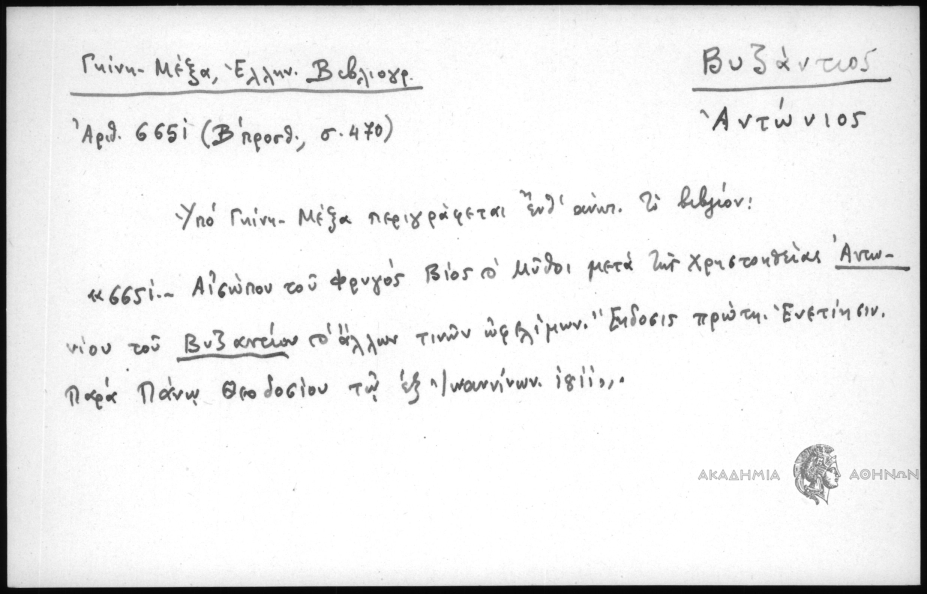 Γκίνη - Μέξα, Ἑλλην. Βιβλιογρ.
Βυζάντιος
Ἀριθ. 6651 (Β΄ προσθ., σ. 470)
Ἀντώνιος
Ὑπό Γκίνη - Μέξα περιγράφεται ἔνθ' ἀνωτ. τό βιβλίον:
«6651.- Αἰσώπου τοῦ Φρυγός Βίος καί Μῦθοι μετά τῆς χρηστοηθείας Ἀντω-
νίου τοῦ Βυζαντίου καί ἄλλων τινῶν ὠφελίμων. Ἔκδοσις πρώτη. Ἐνετίησιν.
Παρά Πάνῳ Θεοδοσίου τῷ ἐξ Ἰωαννίνων. 1811».
ΑΚΑΔΗΜΙΑ ΑΘΗΝΩΝ